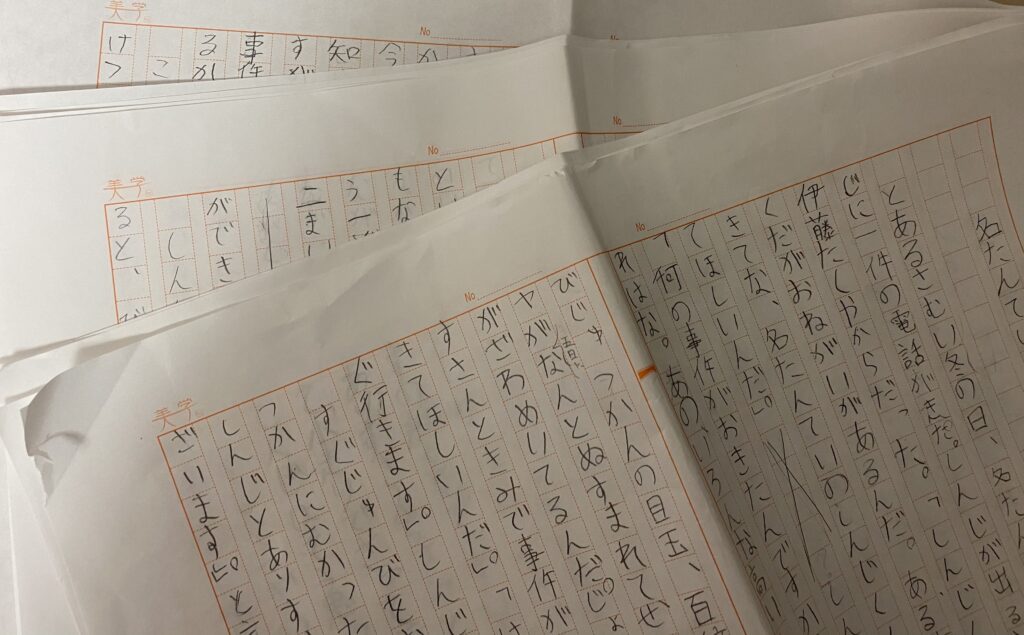 名たんてい
とあるさむい冬の日、名たん
じに一件の電話がきた。しんじが出る
伊藤たしやからだった。「しんじ
くだがおねがいがあるんだ。ある
きてな、名たんていのしんじく
てほしいんだ。」
て何の事件がおきたんですか
れはな。あのいろんな高い
びじゅつかんの目玉、百
億
ヤがなんとぬすまれてせ
がざわめいてるんだ。じょ
すさんときみで事件が
きてほしいんだ。」「
ぐ行きます」。しんじ
すじじゅんびを
つかんにむかった
しんじとありす
ざいます」。と言
No
No
美学
と
もな
う一
二まい
ができ
しん
ると、び
No
No
美学
か
今
知
すが
事件
るか
こ
けつ
No
美学